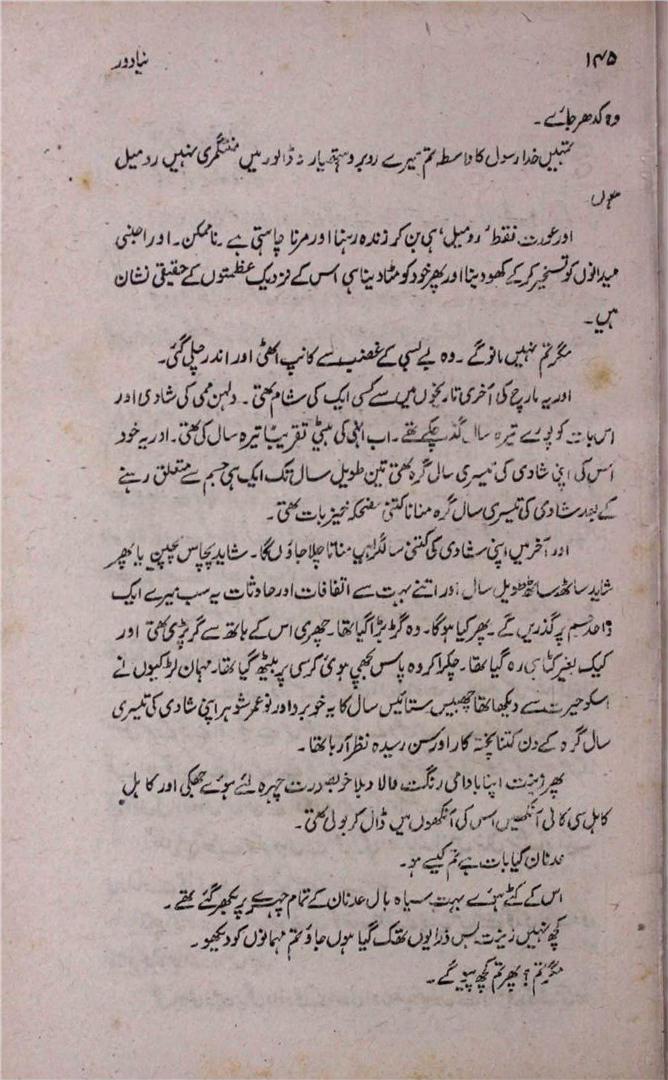 ۱۴۵ نیا دور
وہ کدھر جائے۔
تمہیں خدا رسول کا واسطہ تم میرے روبرو ہتھیار نہ ڈالو ر میں منٹگمری نہیں رومیل
ہوں
اور عورت فقط ’رومیل‘ ہی بن کر زندہ رہنا اور مرنا چاہتی ہے۔ ناممکن۔ اور اجنبی
میدانوں کو تسخیر کر کے کھو دینا اور پھر خود کو مٹا دینا ہی اس کے نزدیک عظمتوں کے حقیقی نشان
ہیں۔
مگر تم نہیں مانو گے۔ وہ بے بسی کے غضب سے کانپ اٹھی اور اندر چلی گئی۔
اور یہ مارچ کی آخری تاریخوں میں سے کسی ایک کی شام تھی۔ دلہن ممی کی شادی اور
اس بات کو پورے تیرہ سال گذر چکے تھے۔ اب انہی کی بیٹی تقریباً تیرہ سال کی تھی۔ اور یہ خود
اس کی اپنی شادی کی تیسری سال گرہ تھی تین طویل سال تک ایک ہی جسم سے متعلق رہنے
کے بعد شادی کی تیسری سال گرہ منانا کتنی مضحکہ خیز بات تھی۔
اور آخر میں اپنی شادی کی کتنی سالگراہیں مناتا چلا جاؤں گا۔ شاید پچاس پچپن یا پھر
شاید ساٹھ ساٹھ طویل سال اور اتنے بہت سے اتفاقات اور حادثات یہ سب میرے ایک
واحد جسم پر گذریں گے۔ پھر کیا ہوگا۔ وہ گڑبڑا گیا تھا۔ چھری اس کے ہاتھ سے گر پڑی تھی اور
کیک بغیر کٹا ہی رہ گیا تھا۔ چکرا کر وہ پاس بچھی ہوئی کرسی پر بیٹھ گیا تھا۔ مہمان لڑکیوں نے
اسکو حیرت سے دیکھا تھا چھبیس ستائیس سال کا یہ خوبرو اور نوعمر شوہر اپنی شادی کی تیسری
سال گرہ کے دن کتنا پختہ کار اور سن رسیدہ نظر آ رہا تھا۔
پھر زینت اپنا بادامی رنگت والا دبلا خوبصورت چہرہ لئے ہوئے جھکی اور کاہل
کاہل سی کالی آنکھیں اس کی آنکھوں میں ڈال کر بولی تھی۔
عدنان کیا بات ہے تم کیسے ہو۔
اس کے کٹے ہوئے بہت سیاہ بال عدنان کے تمام چہرے پر بکھر گئے تھے۔
کچھ نہیں زینت بس ذرا یوں تھک گیا ہوں جاؤ تم مہمانوں کو دیکھو۔
مگر تم؟ پھر تم کچھ پیو گے۔